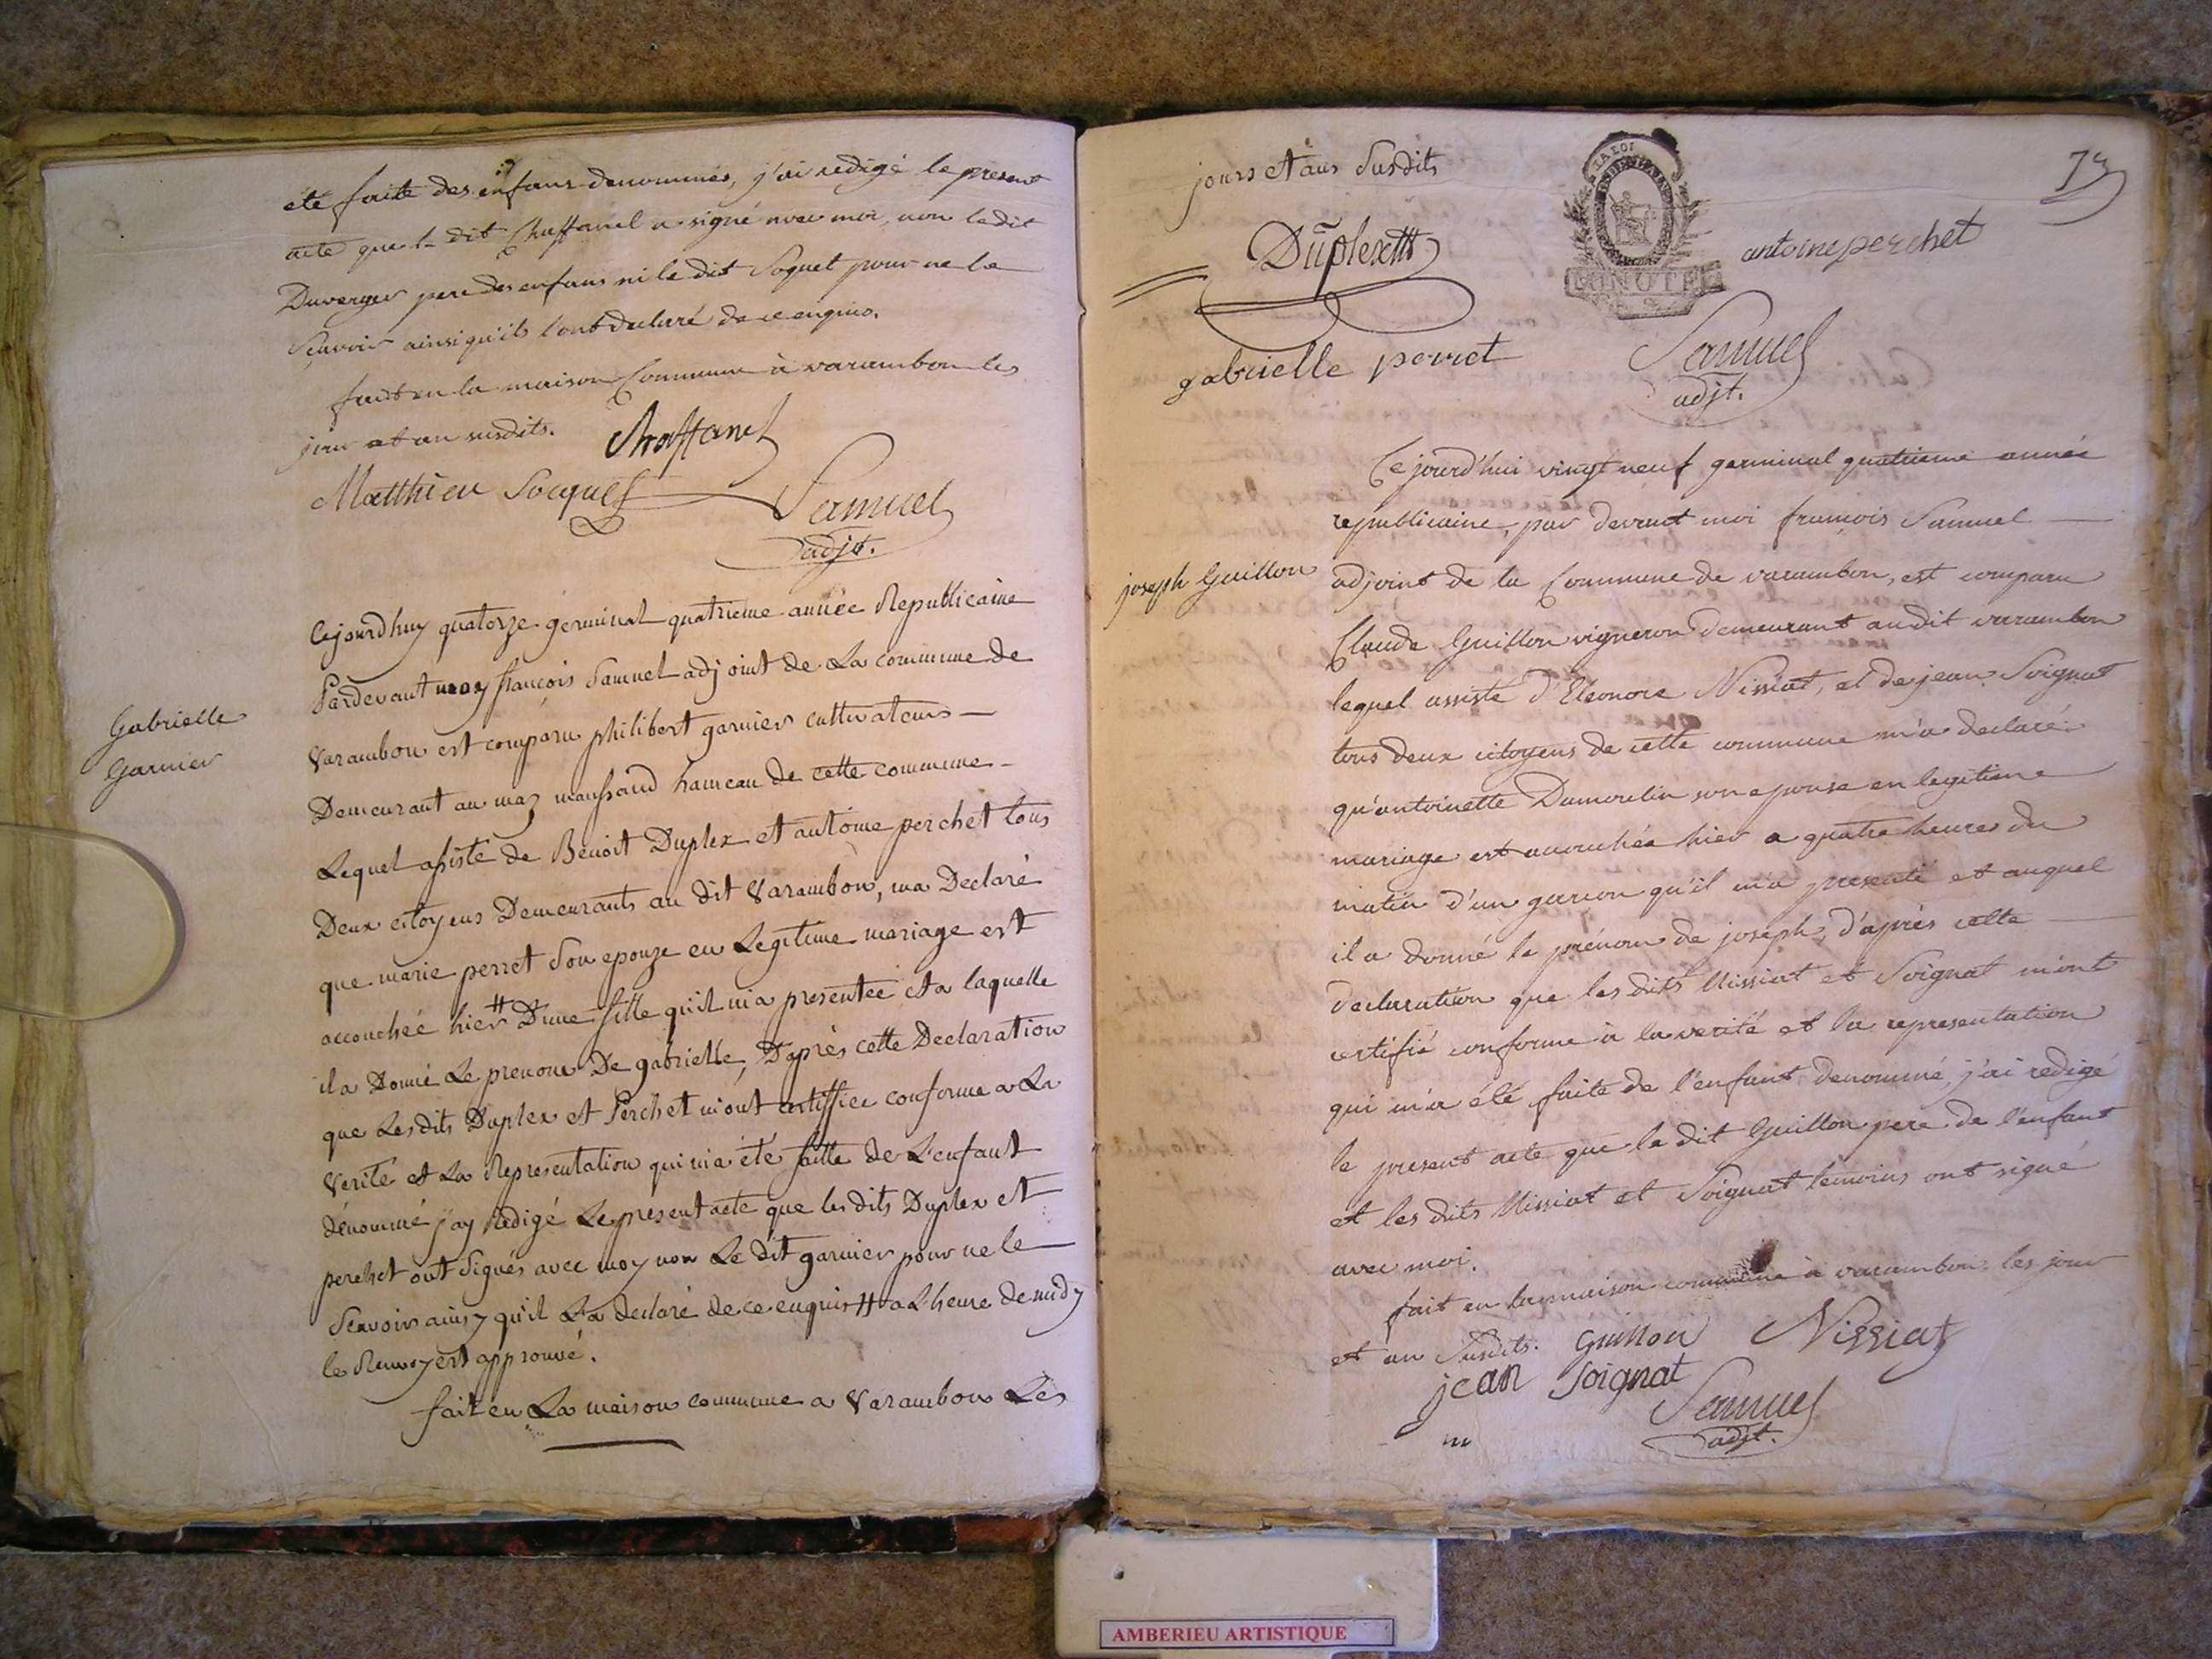 été faite des enfans denommés, j'ai redigé le present
acte que le dit Chaffanel a signé avec moi, non le dit
Duverger pere des enfans ni le dit Soquet pour ne le
sçavoir ainsi qu'ils l'ont declaré de ce enquis.
fait en la maison Commune à varambon les
jour et an susdits. Chaffanel
Matthieu Socquet Samuel
adjt.
Gabrielle
Garnier
Cejourdhuy quatorze germinal quatrieme année Republicaine
Pardevant moy françois Samuel adjoint de La commune de
Varambon est comparu philibert garnier cultivateur
Demeurant au maz manssaud hameau de cette commune
Lequel assisté de Benoit Duplex et antoine perchet tous
Deux citoyens Demeurants au dit Varambon, ma Declaré
que marie perret Son epouze en Legitime mariage est
accouchée hier # Dune fille qu'il m'a presentée et a laquelle
il a Donné Le prenom De gabrielle, D'après cette Declaration
que Lesdits Duplex et Perchet m'ont certiffiée conforme a La
Verité et La Representation qui m'a été faitte de L'enfant
dénommé j'ay redigé Le present acte que les dits Duplex et
perchet ont Signés avec moy non Le dit garnier pour ne le
Scavoir ainsy qu'il L'a declaré de ce enquis # a L'heure de midy
le Renvoy est approuvé.
fait en La maison commune a Varambon Les
jours et ans Susdits
LA LOI
MINUTE
79
Duplex
antoine perchet
gabrielle perret
Samuel
adjt.
joseph Guillon
Ce jourd'hui vingt neuf germinal quatrieme année
republicaine, par devant moi françois Samuel
adjoint de la Commune de varambon, est comparu
Claude Guillon vigneron demeurant audit varambon
lequel assisté d'Eléonore Nissiat, et de jean Soignat
tous deux citoyens de cette commune m'a declaré
qu'antoinette Dumoulin son epouse en legitime
mariage est accouchée hier a quatre heures du
matin d'un garcon qu'il m'a presenté et auquel
il a donné le prénom de joseph, d'après cette
declaration que les dits Nissiat et Soignat m'ont
certifié conforme à la verité et la representation
qui m'a été faite de l'enfant denommé, j'ai redigé
le present acte que le dit Guillon pere de l'enfant
et les dits Nissiat et Soignat temoins ont signé
avec moi.
fait en la maison commune à varambon les jour
et an Susdits. Guillon Nissiat
jean Soignat
Samuel
adjt.
AMBERIEU ARTISTIQUE